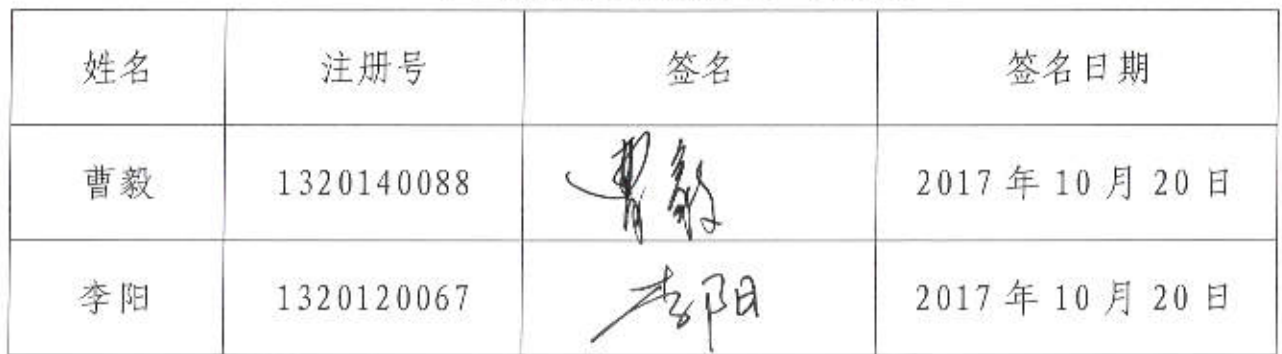 姓名 注册号 签名 签名日期
曹毅 1320140088 曹毅 2017年10月20日
李阳 1320120067 李阳 2017年10月20日